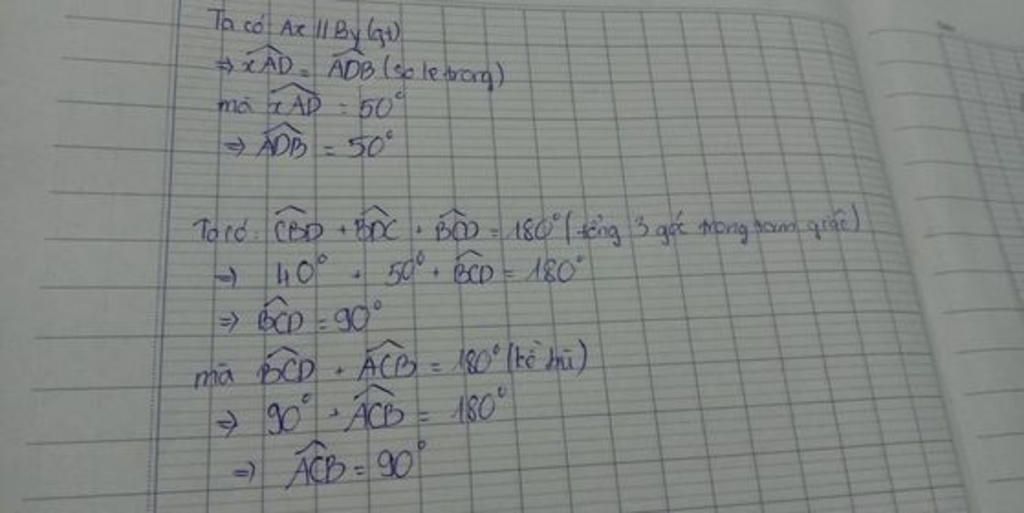 Ta có Ax // By (gt)
⇒ xAD = ADB (so le trong)
mà xAD = 50°
⇒ ADB = 50°
Ta có: CBD + BDC + BCD = 180° (tổng 3 góc trong tam giác)
⇒ 40° + 50° + BCD = 180°
⇒ BCD = 90°
mà BCD + ACB = 180° (kề bù)
⇒ 90° + ACB = 180°
⇒ ACB = 90°